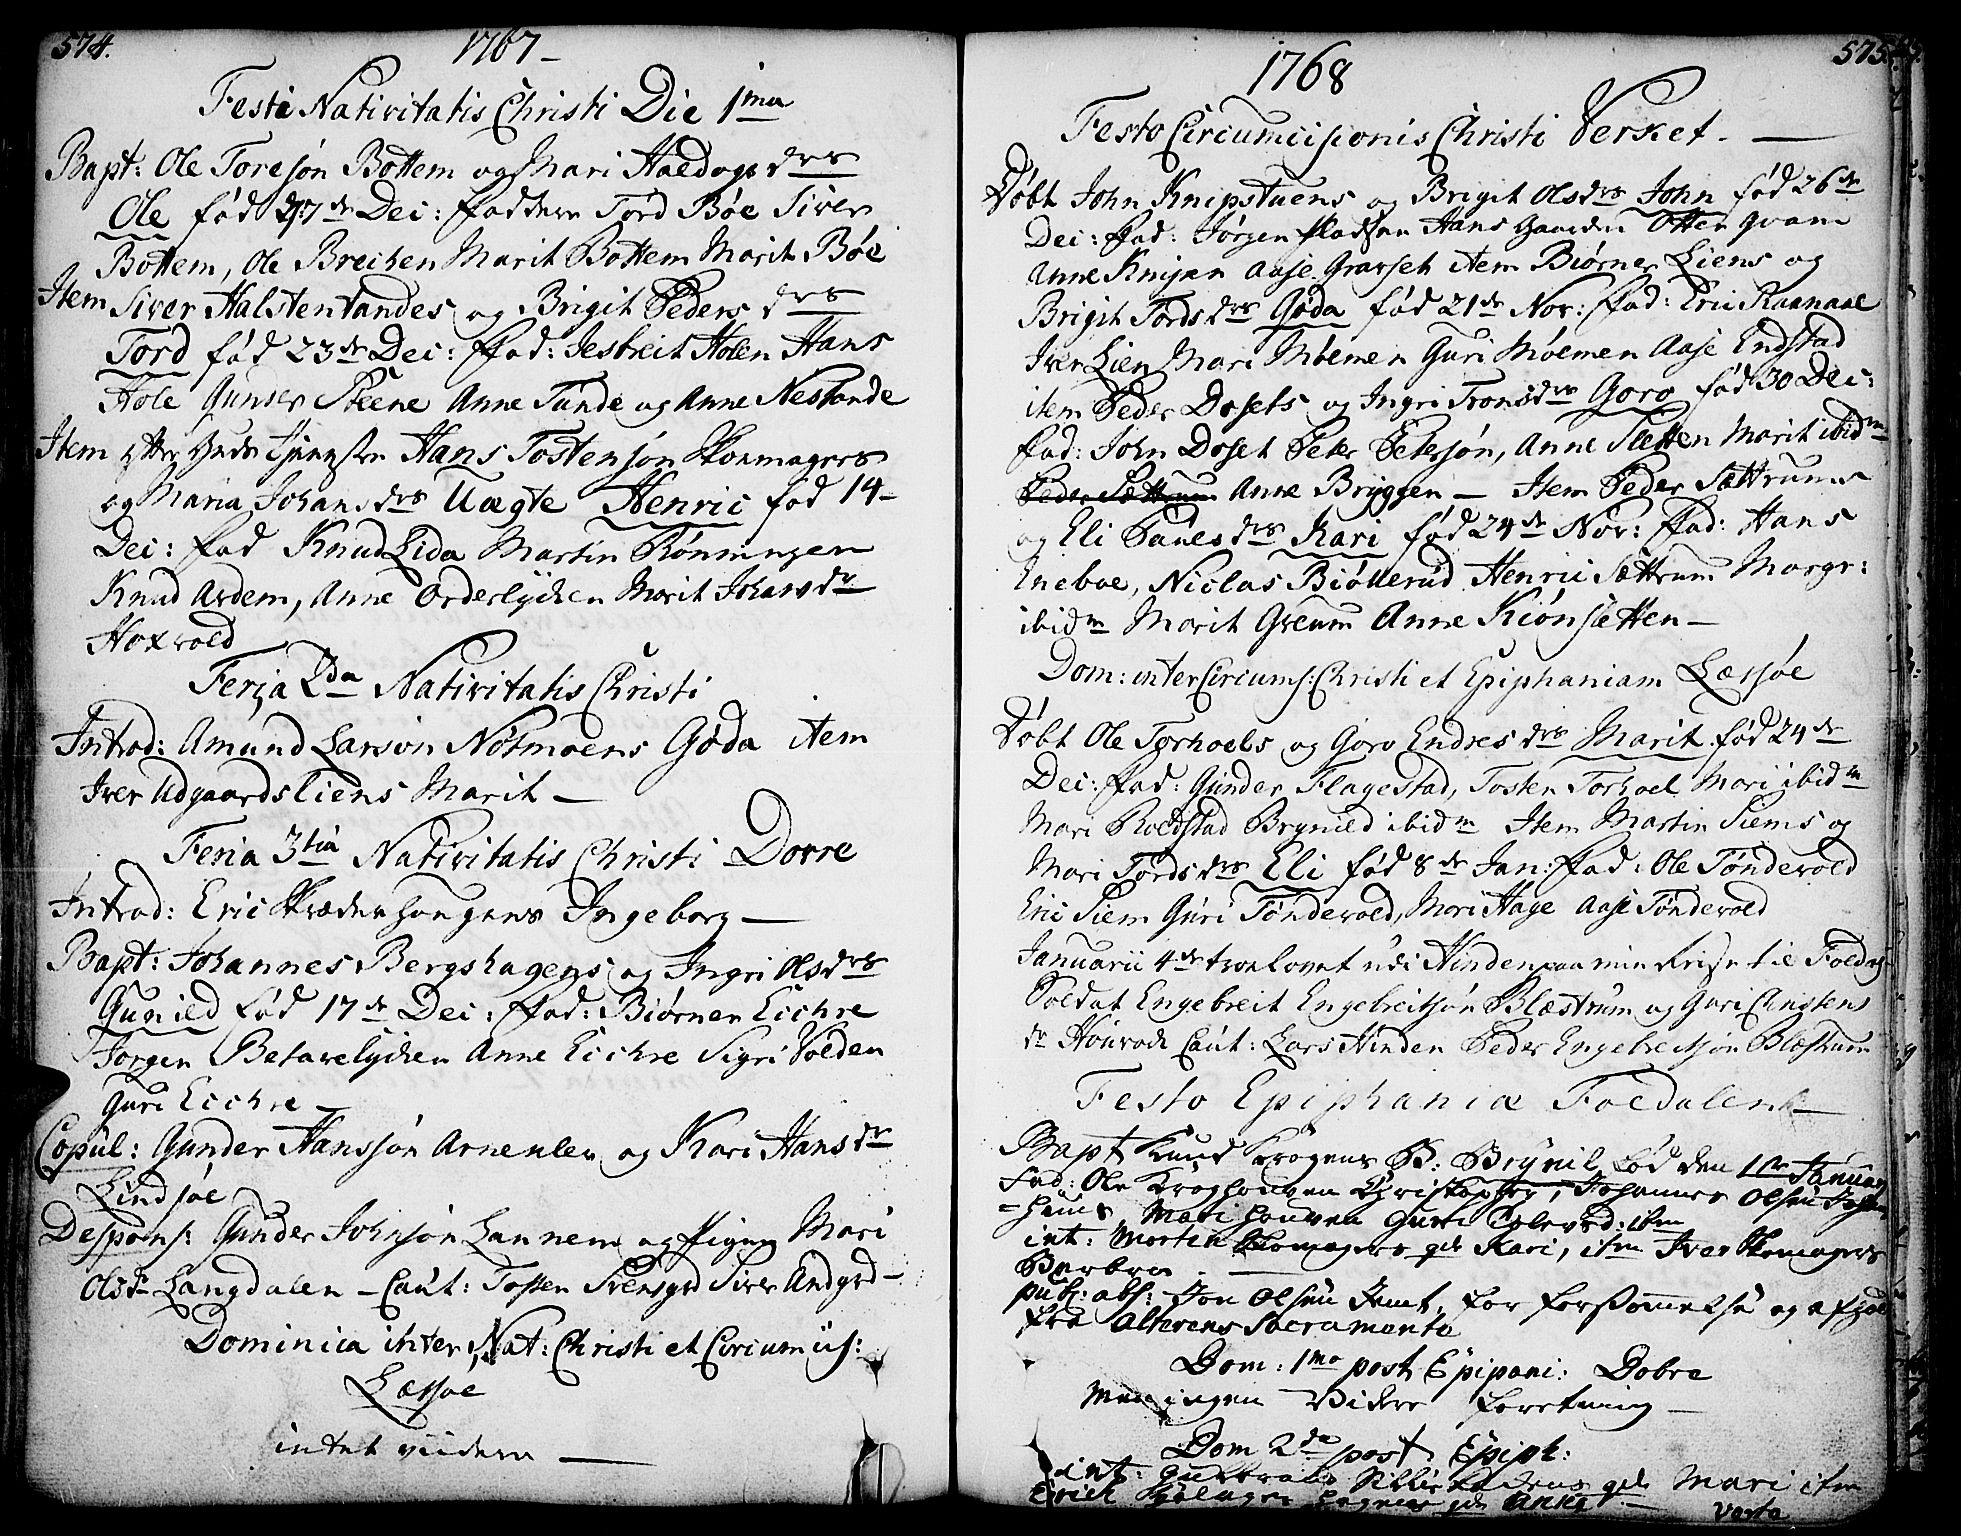 574.
1767-
Festi Nativitatis Christi Die 1ma
Bapt: Ole Toresøn Bottem og Mari Haldogs drs
Ole fød 17de Dec: ffaddere Tord Bøe Siver
Bottem, Ole Brechen Marit Bottem Marit Bøe
Item Siver Halstentandes og Brigit Peders drs
Tord fød 23de Dec: ffad: Jesbreit Holen Hans
Hole Gunder Steene Anne Tande og Anne Nestande
Item Hans Tostensøn Skomagers
og Maria Johansdrs Uægte Henric fød 14-
Dec: ffad Knud Lida Martin Rønningen
Knud Ardem, Anne Orderlycken Marit Johansdr
Hoxvold
Feria 2da Nativitatis Christi
Introd: Amund Larsøn Nørmoens Goda item
Iver Udgaardsliens Marit -
Feria 3tia Nativitatis Christi Dovre
Introd: Eric Skrædderhougens Ingeborg -
Bapt: Johannes Bergshagens og Ingri Olsdrs
Gunild fød 17de Dec: ffad: Biørner Eichre
Jørgen Betavelycken Anne Eichre Sigri Volden
Guri Eichre -
Copul: Gunder Hanssøn og Kari Hansdr
Lindsøe
Despons: Gunder Johnsøn Lannem og Pigen Mari
Olsdr Langdalen - Caut: Tosten Svensgrd Siver Andgrd -
Dominica inter Nat: Christi et Circumcis:
Læssøe
intet viidere -
575.
1768
Festo Circumcisionis Christi Verket. -
Døbt John Knipstuens og Brigit Olsdrs John fød 26de
Dec: ffad: Jørgen Hans Gaarden Otter Qvam
Anne Knipen Aase Gravset item Biørner Liens og
Brigit Tordsdrs Goda fød 21de Nov: ffad: Eric Raanaae
Iver Lien Mari Moemen Guri Moemen Aase Endstad
item Peder Dosets og Ingri Tronsdrs Goro fød 30 Dec:
ffad: John Doset Peter Petersøn, Anne Sletten Marit ibidm
Peder Sættrum Anne Bryggen - Item Peder Sættrums
og Eli Povelsdrs Kari fød 24de Nov: ffad: Hans
Eneboe, Niclas Biøllerud Henric Sættrum Margr:
ibidm Marit Greum Anne Kiønsetten -
Dom: inter Circums: Christi et Epiphaniam Læssøe
Døbt Ole Torhoels og Goro Endresdrs Marit fød 24de
Dec: ffad: Gunder Flagestad, Tosten Torhoel Mari ibidm
Mari Roldstad Brynild ibidm Item Martin Siems og
Mari Tordsdrs Eli fød 8de Jan: ffad: Ole Tøndevold
Eric Siem Guri Tøndevold, Mari Hage Aase Tøndevold
Januarii 4de trolovet udi Hinden paa min Reise til Foldal
Soldat Engebreit Engebreitsøn Blæstrum og Guri Cristens
dr Caut: Lars Hinden Peder Engebreitsøn Blæstrum
Festo Epiphania Foldalen -
Bapt Knud Krogens B: Brynil fød den 1ste Januar
Fad: Ole Kroghougen Christopher, Johannes Olsen
Mari Hougen Guri item
int: Morten Skomagers gds Kari, item Iver Skomagers
Barbra -
publ: abs: Jon Olsen for forsømmelse og afhold
fra Alterens Sacramente
Dom: 1ma post Epipani: Dovre
Men ingen Videre forretning -
Dom 2da post Epiph:
int: Gudbrand gds Mari item
Erich gds Anne -